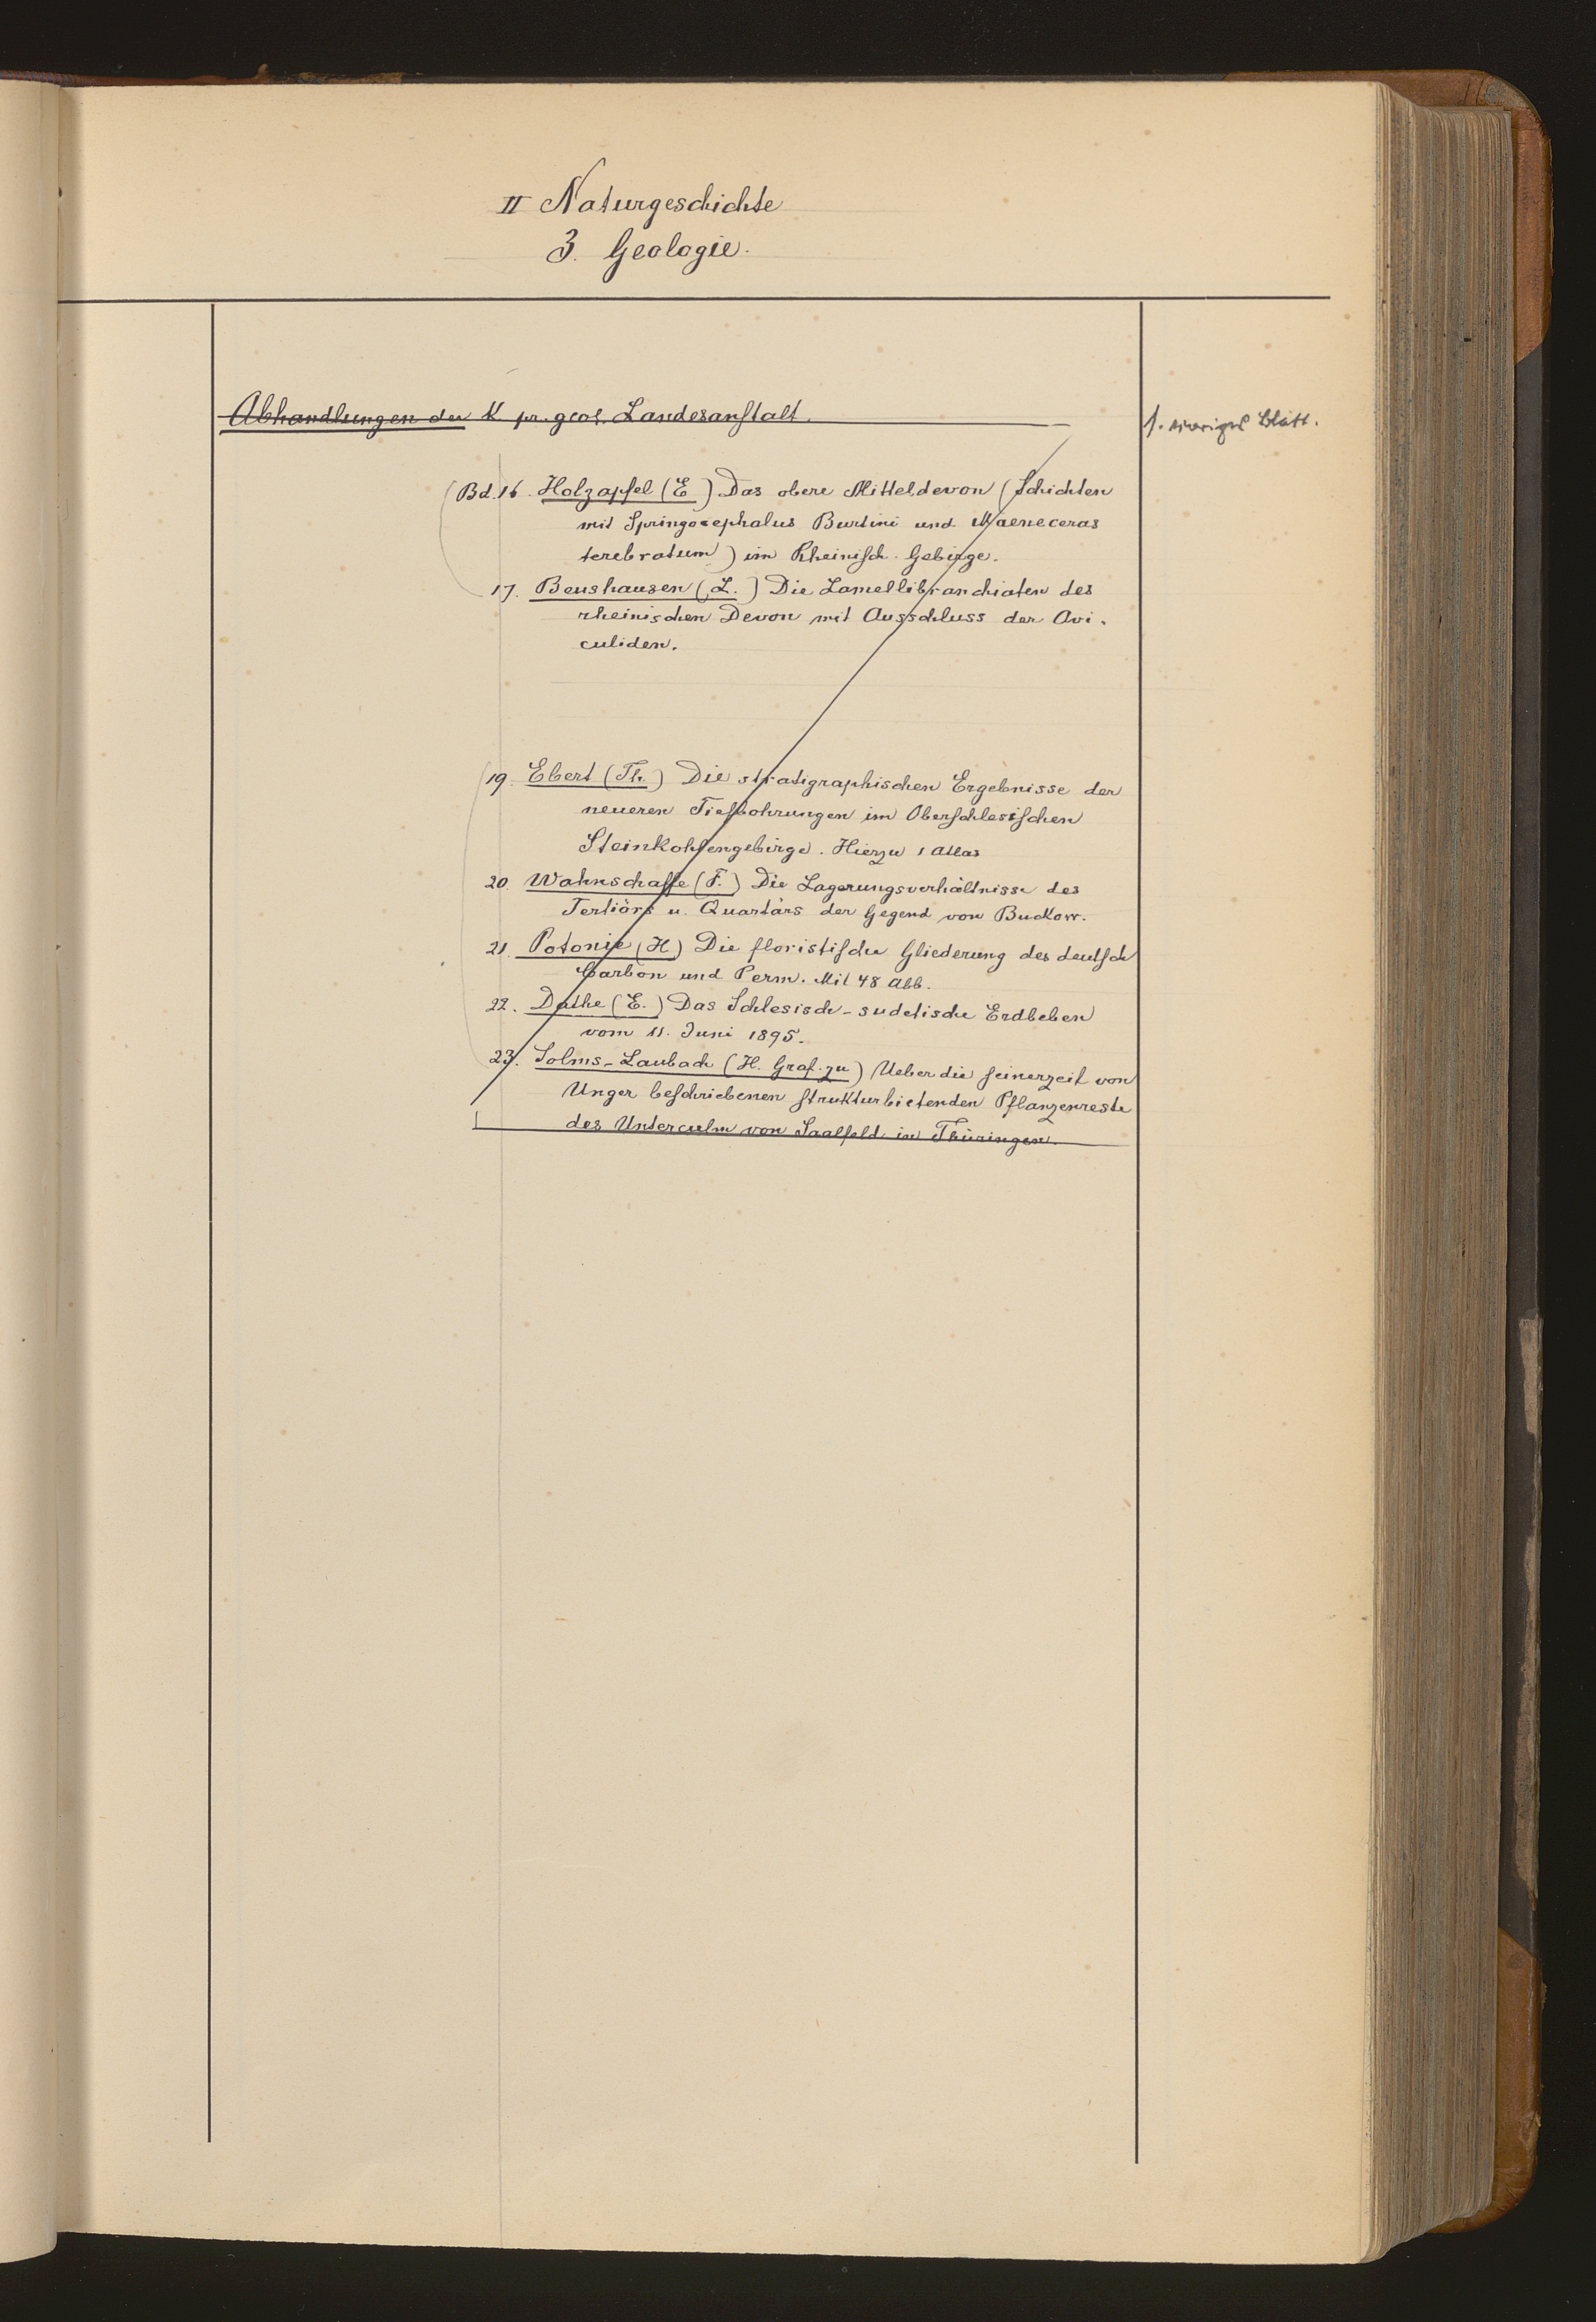 II Naturgeschichte
3. Geologie.
Abhandlungen der K pr. geol. Landesanstalt.
s. voriges Blatt.
(Bd. 16. Holzapfel (E) Das obere Mitteldevon (Schichten
mit Springocephalus Burtini und Maeneceras
terebratum) im Rheinisch. Gebirge.
17. Beushausen (L.) Die Lamellibranchiaten des
rheinischen Devon mit Ausschluss der Avi-
culiden.
19. Ebert (Th.) Die stratigraphischen Ergebnisse der
neueren Tiefbohrungen im Oberschlesischen
Steinkohlengebirge. Hierzu 1 Atlas
20. Wahnschaffe (F.) Die Lagerungsverhältnisse des
Tertiärs u. Quartärs der Gegend von Buckow.
21. Potonie (H) Die floristische Gliederung des deutsch
Carbon und Perm. Mit 48 Abb.
22. Dathe (E.) Das Schlesisch-sudetische Erdbeben
vom 11. Juni 1895.
23. Solms-Laubach (H. Graf. zu) Ueber die seinerzeit von
Unger beschriebenen strukturbietenden Pflanzenreste
des Unterculm von Saalfeld in Thüringen.